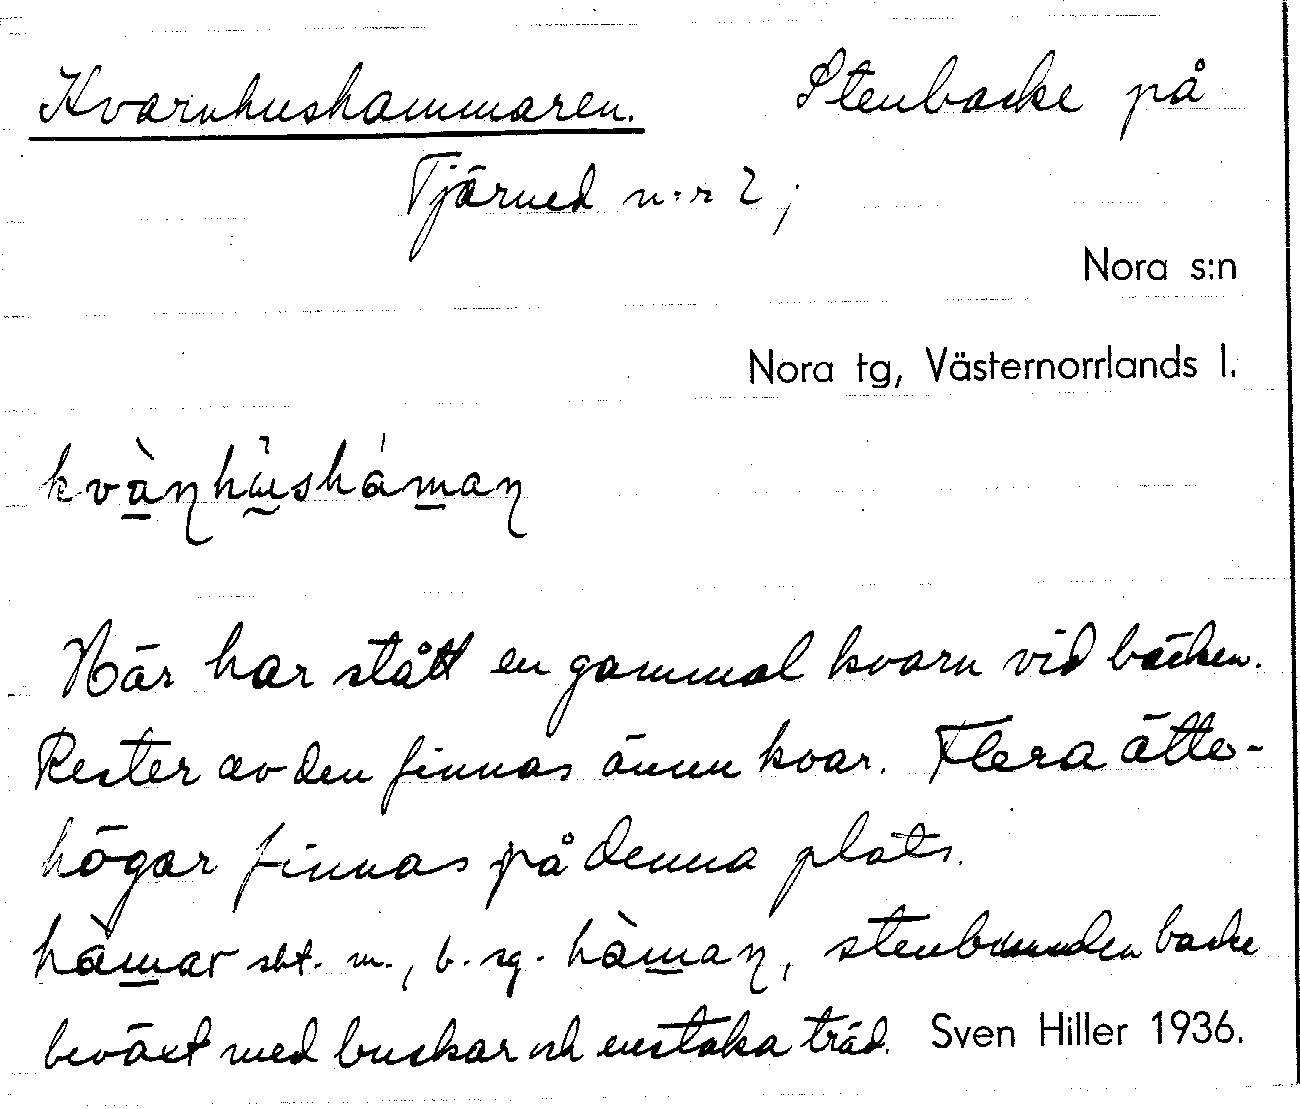 Kvarnhushammaren. Stenbacke på
Tjärned n:r 2;
Nora s:n
Nora tg, Västernorrlands l.
kvàɳhùshámaɳ
Här har stått en gammal kvarn vid bäcken.
Rester av den finnas ännu kvar. Flera ätte-
högar finnas på denna plats.
hàmar sbt. m., b. sg. hàmaɳ, stenbunden backe
beväxt med buskar och enstaka träd. Sven Hiller 1936.